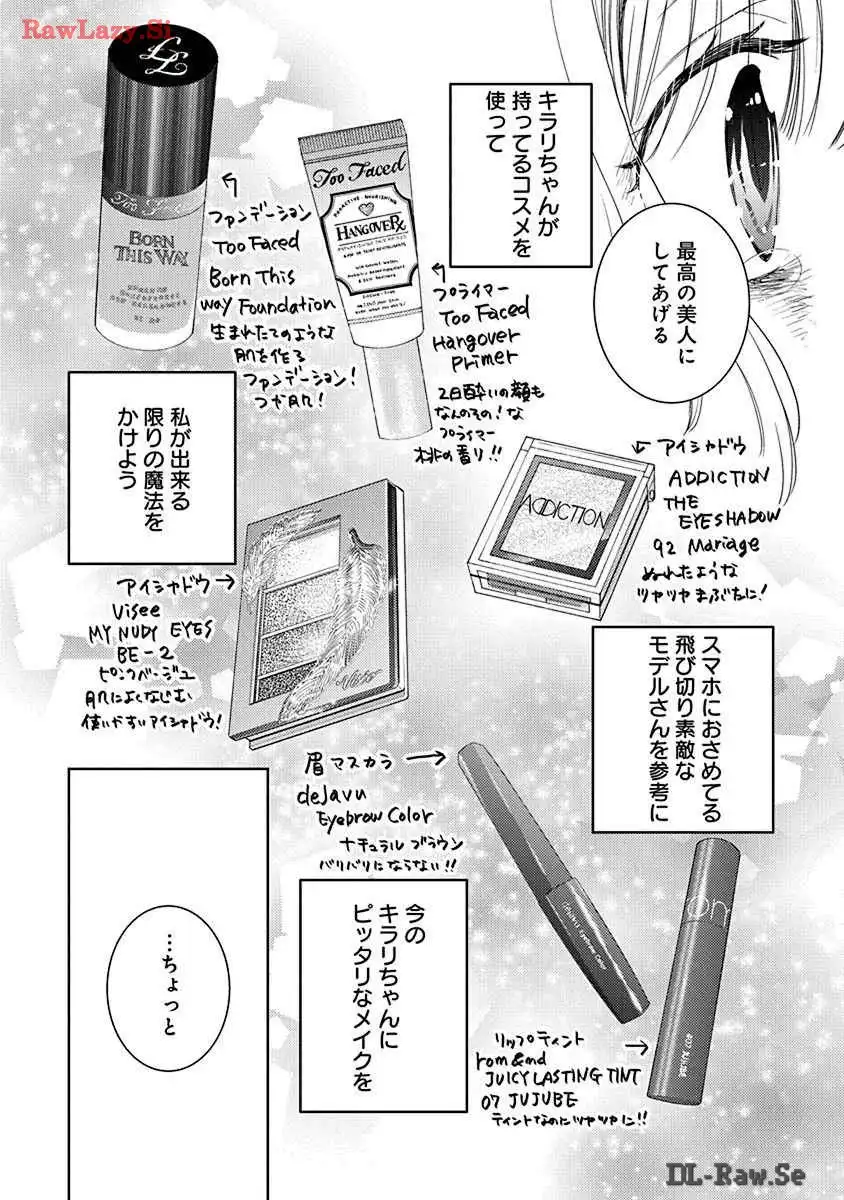 RawLazy.Si
最高の美人に
してあげる
キラリちゃんが
持ってるコスメを
使って
Too Faced
BORN
THIS WAY
ファンデーション
Too Faced
Born This
Way Foundation
生まれたてのような
肌を作る
ファンデーション!
つや肌!
Too Faced
HANGOVERRX
プライマー
Too Faced
Hangover
Primer
2日酔いの顔も
なんのその!な
プライマー
桃の香り!!
私が出来る
限りの魔法を
かけよう
ADDICTION
アイシャドウ
ADDICTION
THE
EYESHADOW
92 Mariage
ぬれたような
ツヤツヤまぶたに!
アイシャドウ
Visee
MY NUDY EYES
BE-2
ピンクベージュ
肌によくなじむ
使いやすいアイシャドウ!
Visée
スマホにおさめてる
飛び切り素敵な
モデルさんを参考に
眉マスカラ
dejavu
Eyebrow Color
ナチュラルブラウン
バリバリにならない!!
今の
キラリちゃんに
ピッタリなメイクを
om
#07 JUJUBE
リップティント
rom&nd
JUICY LASTING TINT
07 JUJUBE
ティントなのにツヤツヤに!!
…ちょっと
DL-Raw.Se